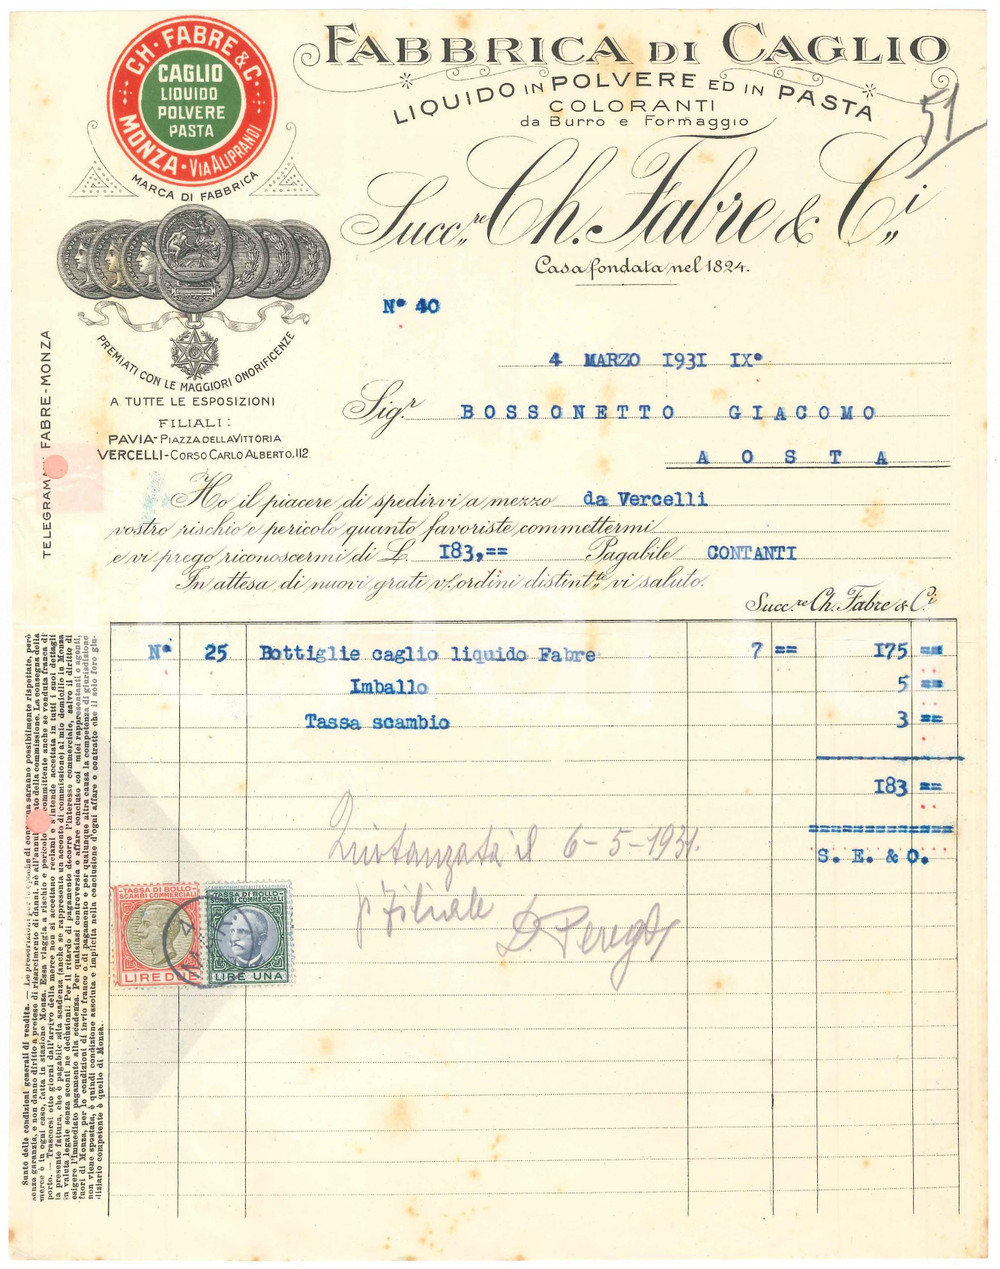 CH. FABRE & C.
CAGLIO
LIQUIDO
POLVERE
PASTA
MONZA · VIA ALIPRANDI
MARCA DI FABBRICA
FABBRICA DI CAGLIO
LIQUIDO IN POLVERE ED IN PASTA
COLORANTI
da Burro e Formaggio
51
Succ.re Ch. Fabre & C.i
Casa fondata nel 1824.
PREMIATI CON LE MAGGIORI ONORIFICENZE
A TUTTE LE ESPOSIZIONI
FILIALI:
PAVIA - PIAZZA DELLA VITTORIA
VERCELLI - CORSO CARLO ALBERTO. 112
TELEGRAMMI FABRE-MONZA
N° 40
4 MARZO 1931 IX°
Sig.r BOSSONETTO GIACOMO
AOSTA
Ho il piacere di spedirvi a mezzo da Vercelli
vostro rischio e pericolo quanto favoriste commettermi
e vi prego riconoscermi di L. 183,== Pagabile CONTANTI
In attesa di nuovi grati v/ ordini distint.te vi saluto.
Succ.re Ch. Fabre & C.i
N° 25 Bottiglie caglio liquido Fabre 7 == 175 ==
Imballo 5 ==
Tassa scambio 3 ==
183 ==
S. E. & O.
Quietanzata il 6-5-1931.
p Filiale
TASSA DI BOLLO
SCAMBI COMMERCIALI
LIRE DUE
TASSA DI BOLLO
SCAMBI COMMERCIALI
LIRE UNA
Sunto delle condizioni generali di vendita. —
senza garanzia, e non danno diritto a pretese di risarcimento di danni, nè all'
merce è in ogni caso, fatta in stazione Monza. Essa viaggia a rischio e pericolo committente anche se venduta franca di
porto. — Trascorsi otto giorni dall'arrivo della merce non si accettano reclami e s'intende accettata in tutti i suoi dettagli
la presente fattura, che è pagabile alla scadenza (anche se rappresenta un acconto di commissione) al mio domicilio in Monza
in valuta legale senza sconti ne deduzioni. Per il ritardo di pagamento decorre l'interesse commerciale, salvo il diritto di
esigere l'immediato pagamento alla scadenza. Per qualsiasi controversia o affare concluso coi miei rappresentanti o agenti,
fuori di Monza, per le condizioni di invio franco o di pagamento e per qualunque altra causa la competenza di giurisdizione
non viene spostata, è quindi condizione assoluta e implicita nella conclusione d'ogni affare o contratto che il solo foro giu-
diziario competente è quello di Monza.